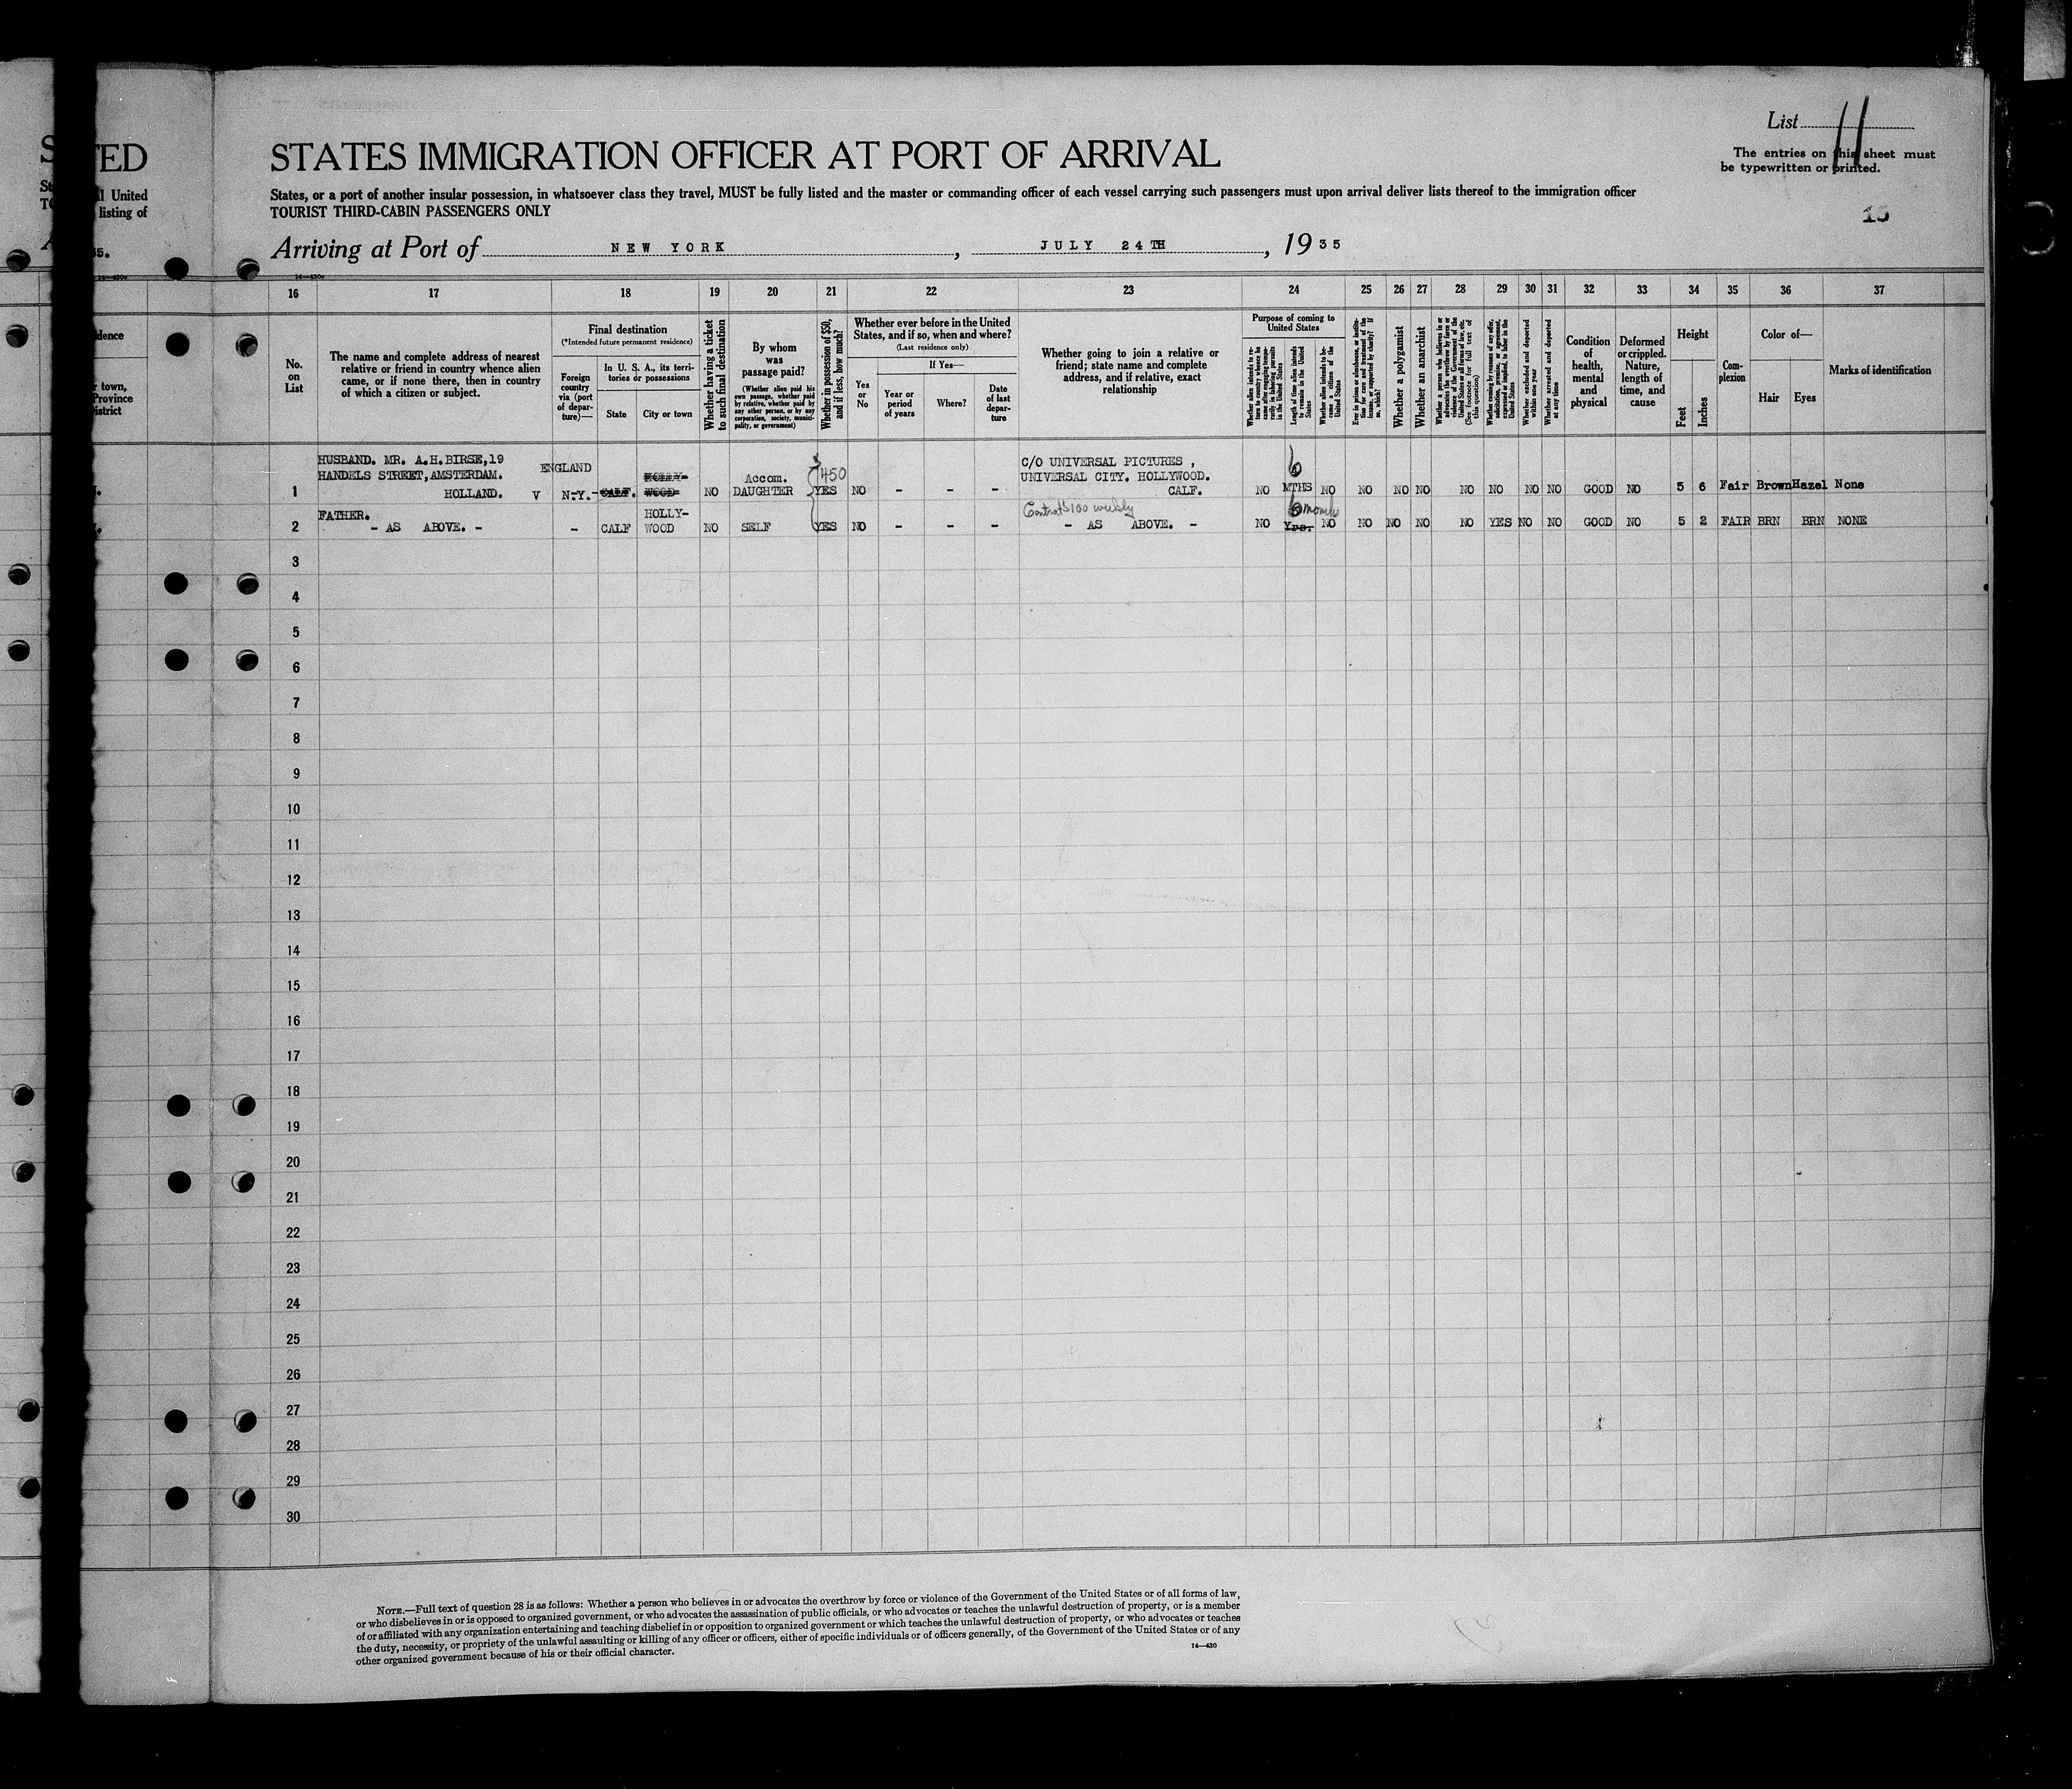 List 11
The entries on this sheet must
be typewritten or printed.
15
TED
STATES IMMIGRATION OFFICER AT PORT OF ARRIVAL
ll United
listing of
States, or a port of another insular possession, in whatsoever class they travel, MUST be fully listed and the master or commanding officer of each vessel carrying such passengers must upon arrival deliver lists thereof to the immigration officer
TOURIST THIRD-CABIN PASSENGERS ONLY
Arriving at Port of NEW YORK, JULY 24TH, 1935
16 17 18 19 20 21 22 23 24 25 26 27 28 29 30 31 32 33 34 35 36 37
No.
on
List
The name and complete address of nearest
relative or friend in country whence alien
came, or if none there, then in country
of which a citizen or subject.
Final destination
(*Intended future permanent residence)
Foreign
country
via (port
of depar-
ture)—
In U. S. A., its terri-
tories or possessions
State
City or town
Whether having a ticket
to such final destination
By whom
was
passage paid?
(Whether alien paid his
own passage, whether paid
by relative, whether paid by
any other person, or by any
corporation, society, munici-
pality, or government)
Whether in possession of $50,
and if less, how much?
Whether ever before in the United
States, and if so, when and where?
(Last residence only)
Yes
or
No
If Yes—
Year or
period
of years
Where?
Date
of last
depar-
ture
Whether going to join a relative or
friend; state name and complete
address, and if relative, exact
relationship
Purpose of coming to
United States
Whether alien intends to re-
turn to country whence he
came after engaging tempo-
rarily in laboring pursuits
in the United States
Length of time alien intends
to remain in the United
States
Whether alien intends to be-
come a citizen of the
United States
Ever in prison or almshouse, or institu-
tion for care and treatment of the
insane, or supported by charity? If
so, which?
Whether a polygamist
Whether an anarchist
Whether a person who believes in or
advocates the overthrow by force or
violence of the Government of the
United States or all forms of law, etc.
(See footnote for full text of
this question)
Whether coming by reason of any offer,
solicitation, promise, or agreement,
expressed or implied, to labor in the
United States
Whether excluded and deported
within one year
Whether arrested and deported
at any time
Condition
of
health,
mental
and
physical
Deformed
or crippled.
Nature,
length of
time, and
cause
Height
Feet
Inches
Com-
plexion
Color of—
Hair
Eyes
Marks of identification
HUSBAND. MR. A.H.BIRSE,19
HANDELS STREET,AMSTERDAM.
HOLLAND.
V
1 ENGLAND N.Y.-CALF. HOLLY-WOOD NO Accom. DAUGHTER $450 YES NO - - -
C/O UNIVERSAL PICTURES ,
UNIVERSAL CITY. HOLLYWOOD.
CALF.
NO 6 MTHS NO NO NO NO NO NO NO NO GOOD NO 5 6 Fair Brown Hazel None
FATHER.
2 - AS ABOVE. - - CALF HOLLY-WOOD NO SELF YES NO - - -
Contract $100 weekly
- AS ABOVE. -
NO 6 months NO NO NO NO NO YES NO NO GOOD NO 5 2 FAIR BRN BRN NONE
3
4
5
6
7
8
9
10
11
12
13
14
15
16
17
18
19
20
21
22
23
24
25
26
27
28
29
30
NOTE.—Full text of question 28 is as follows: Whether a person who believes in or advocates the overthrow by force or violence of the Government of the United States or of all forms of law,
or who disbelieves in or is opposed to organized government, or who advocates the assassination of public officials, or who advocates or teaches the unlawful destruction of property, or is a member
of or affiliated with any organization entertaining and teaching disbelief in or opposition to organized government or which teaches the unlawful destruction of property, or who advocates or teaches
the duty, necessity, or propriety of the unlawful assaulting or killing of any officer or officers, either of specific individuals or of officers generally, of the Government of the United States or of any
other organized government because of his or their official character.
14—430